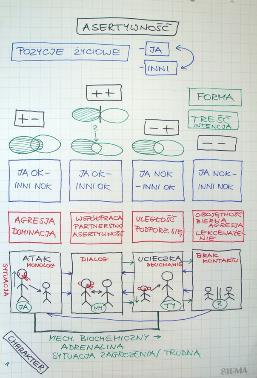 ASERTYWNOŚĆ
POZYCJE ŻYCIOWE
- JA
- INNI
++
FORMA
TREŚĆ
INTENCJA
+-
-+
--
JA OK-
INNI NOK
JA OK-
INNI OK
JA NOK
-INNI OK
JA NOK-
INNI NOK
AGRESJA
DOMINACJA
WSPÓŁPRACA
PARTNERSTWO
ASERTYWNOŚĆ
ULEGŁOŚĆ
OBOJĘTNOŚĆ
BIERNA
AGRESJA
LEKCEWAŻE-
NIE
SYTUACJA
ATAK
MONOLOG
DIALOG
UCIECZKA
SŁUCHANIE
BRAK
KONTAKTU
JA
MY
TY
CHARAKTER
MECH. BIOCHEMICZNY →
ADRENALINA
SYTUACJA ZAGROŻENIA/TRUDNA
SIGMA